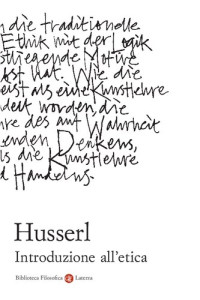 in die traditionelle
Ethik mit der Logik
stliegende Motive
ßst hat. Wie die
eist als eine Kunstlehre
delt worden, die
hre des auf Wahrheit
enden Denkens,
ls die Kunstlehre
d Handelns.
Husserl
Introduzione all'etica
Biblioteca Filosofica Laterza